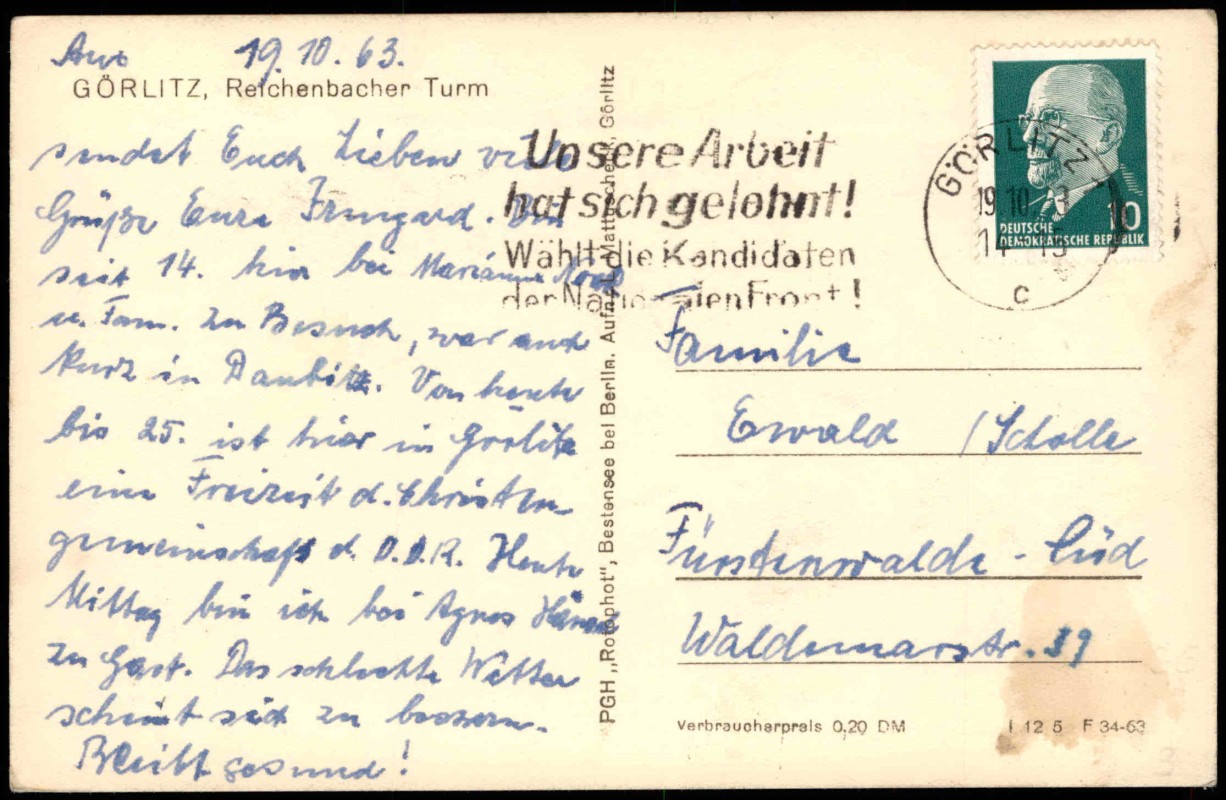 Aus 19.10.63.
GÖRLITZ, Reichenbacher Turm
sendet Euch Lieben viele
Grüße Eure Irmgard. Bin
seit 14. hier bei Marianne
u. Fam. zu Besuch, war auch
kurz in Daubitz. Von heute
bis 25. ist hier in Görlitz
eine Freizeit d. Christen-
gemeinschaft d. D.D.R. Heute
Mittag bin ich bei Agnes
zu Gast. Das schlechte Wetter
scheint sich zu bessern.
Bleibt gesund!
PGH „Rotophot", Bestensee bei Berlin. Aufn. L. Mattuscheck, Görlitz
Unsere Arbeit
hat sich gelohnt!
Wählt die Kandidaten
der Nationalen Front!
GÖRLITZ
19.10.63
C
10
DEUTSCHE
DEMOKRATISCHE REPUBLIK
Familie
Ewald Scholle
Fürstenwalde - Süd
Waldemarstr. 39
Verbraucherpreis 0,20 DM I 12 5 F 34-63